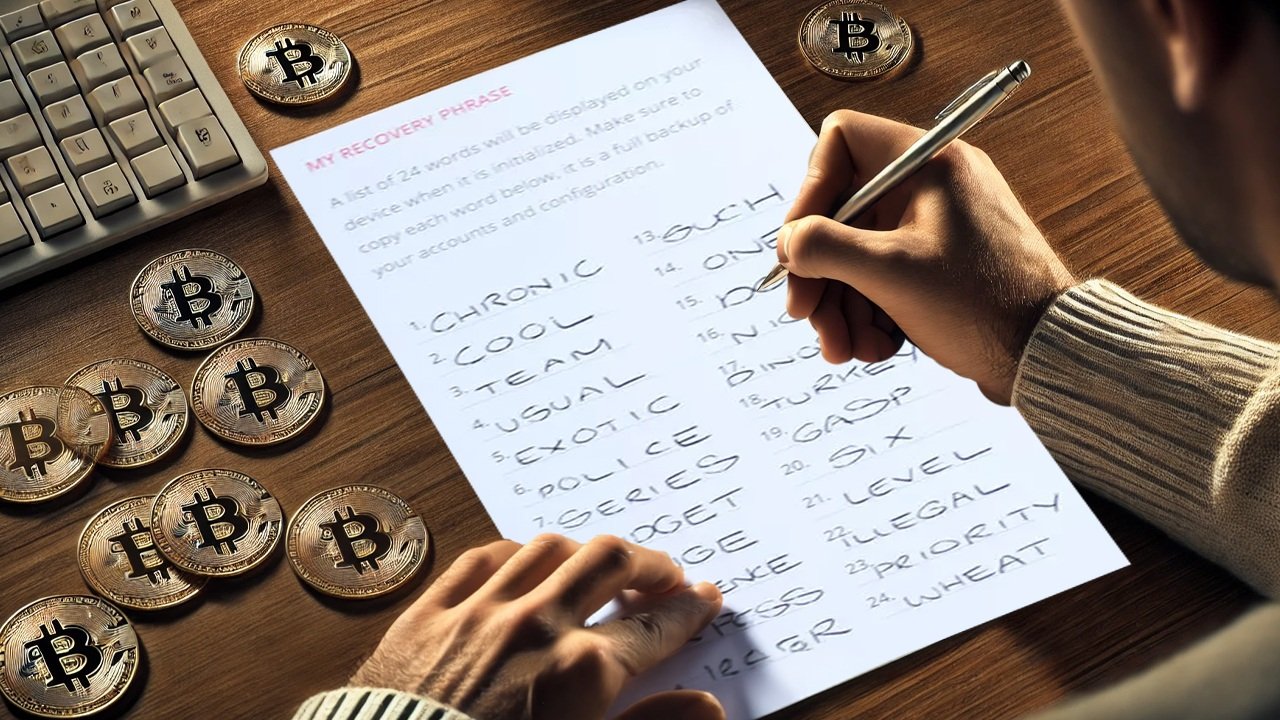 MY RECOVERY PHRASE
A list of 24 words will be displayed on your
device when it is initialized. Make sure to
copy each word below, it is a full backup of
your accounts and configuration.
1. CHRONIC
2. COOL
3. TEAM
4. USUAL
5. EXOTIC
6. POLICE
7. SERIES
DGET
ENCE
13. SUCH
14. ONE
15.
16. NIC
17. DINO
18. TURKEY
19. GASP
20. SIX
21. LEVEL
22. ILLEGAL
23. PRIORITY
24. WHEAT